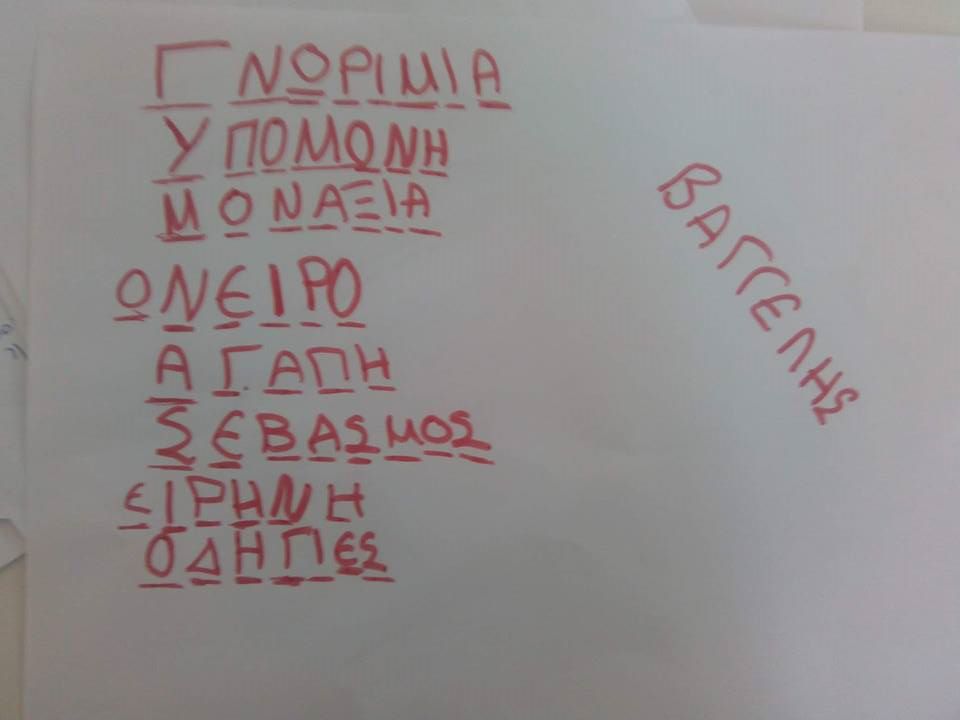 ΓΝΟΡΙΜΙΑ
ΥΠΟΜΟΝΗ
ΜΟΝΑΞΙΑ
ΟΝΕΙΡΟ
ΑΓΑΠΗ
ΣΕΒΑΣΜΟΣ
ΕΙΡΗΝΗ
ΟΔΗΓΙΕΣ
ΒΑΓΓΕΛΗΣ